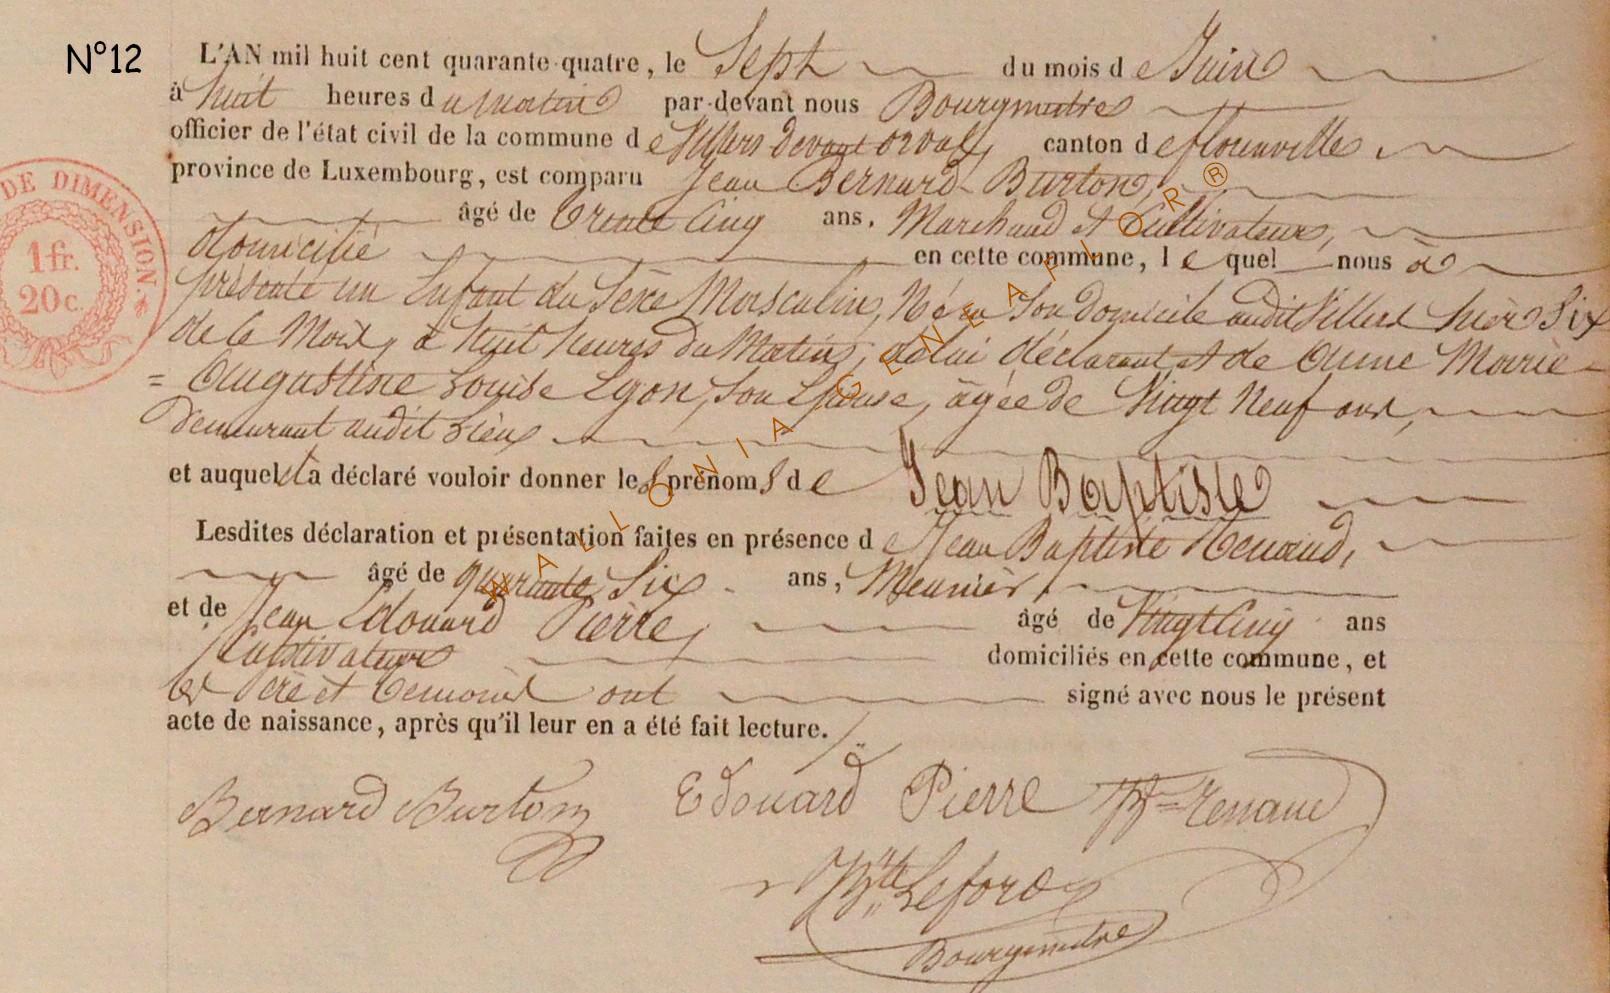 N°12
L'AN mil huit cent quarante-quatre, le Sept du mois de Juin
à huit heures du matin par-devant nous Bourgmestre
officier de l'état civil de la commune de Villers devant orval, canton de florenville
province de Luxembourg, est comparu Jean Bernard Burton,
âgé de Trente Cinq ans, Marchand et Cultivateur,
domicilié en cette commune, lequel nous à
présenté un Enfant du Sexe Masculin, Né en Son domicile audit Villers hier Six
de ce Mois, à huit heures du Matin, de lui déclarant et de Anne Marie
= Augustine Louise Lyon, Son Epouse, âgée de Vingt Neuf ans,
demeurant audit lieu
et auquel il a déclaré vouloir donner les prénoms de Jean Baptiste
Lesdites déclaration et présentation faites en présence de Jean Baptiste Renaud,
âgé de quarante Six ans, Meunier,
et de Jean Edouard Pierre, âgé de Vingt Cinq ans
Cultivateur domiciliés en cette commune, et
les Père et Temoins ont signé avec nous le présent
acte de naissance, après qu'il leur en a été fait lecture.
Bernard Burton Edouard Pierre Renaud
Bte Leford
Bourgmestre
DE DIMENSION.
1 fr.
20 c.
WALLONIA GENEAPLOR®